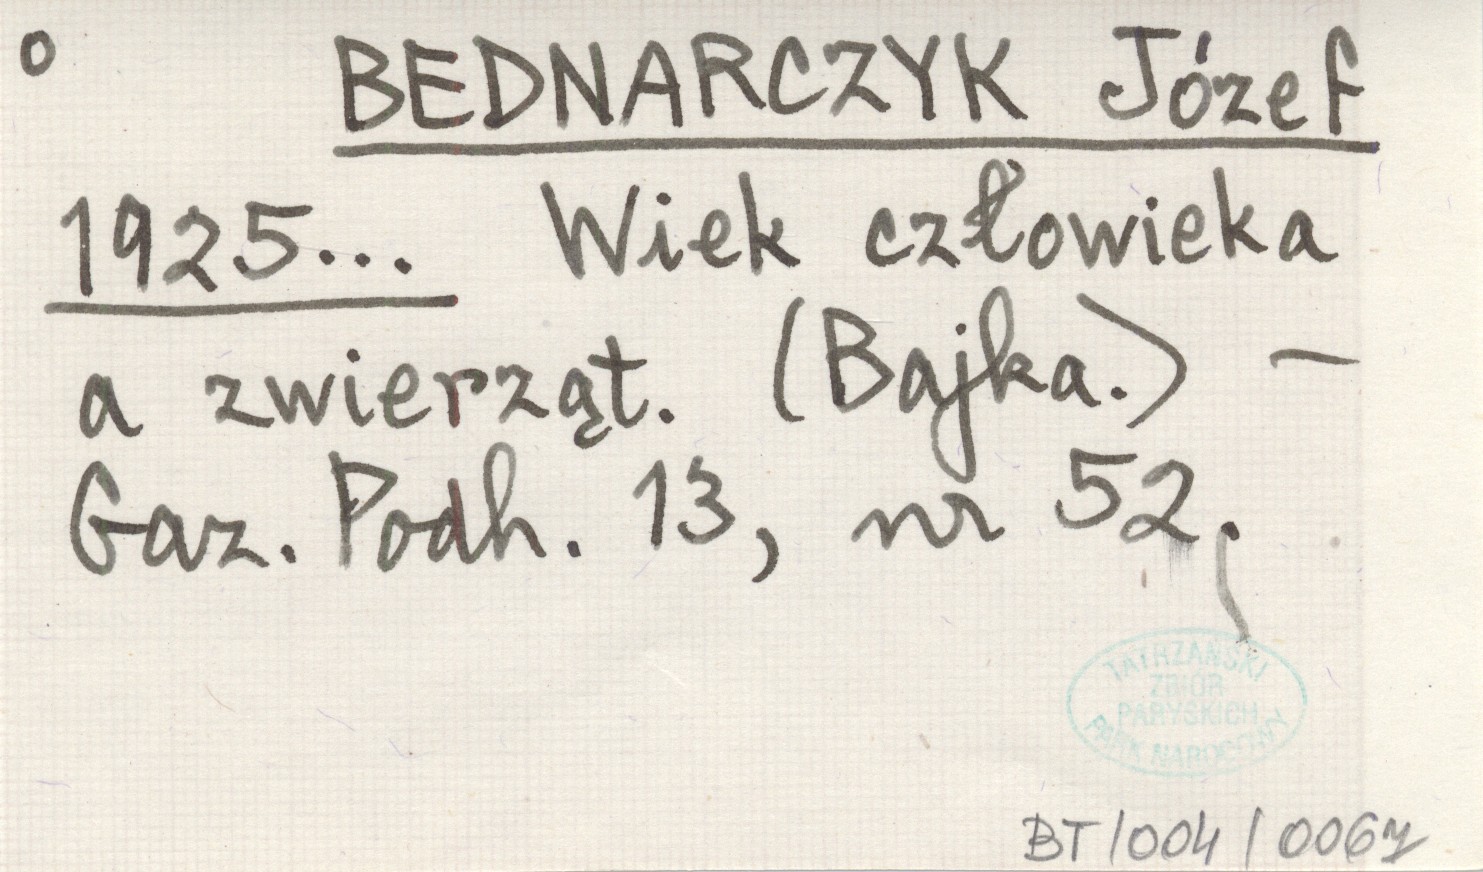 o BEDNARCZYK Józef
1925... Wiek człowieka
a zwierząt. (Bajka.) –
Gaz. Podh. 13, nr 52.
TATRZAŃSKI
ZBIÓR
PARYSKICH
PARK NARODOWY
BT/004/0067